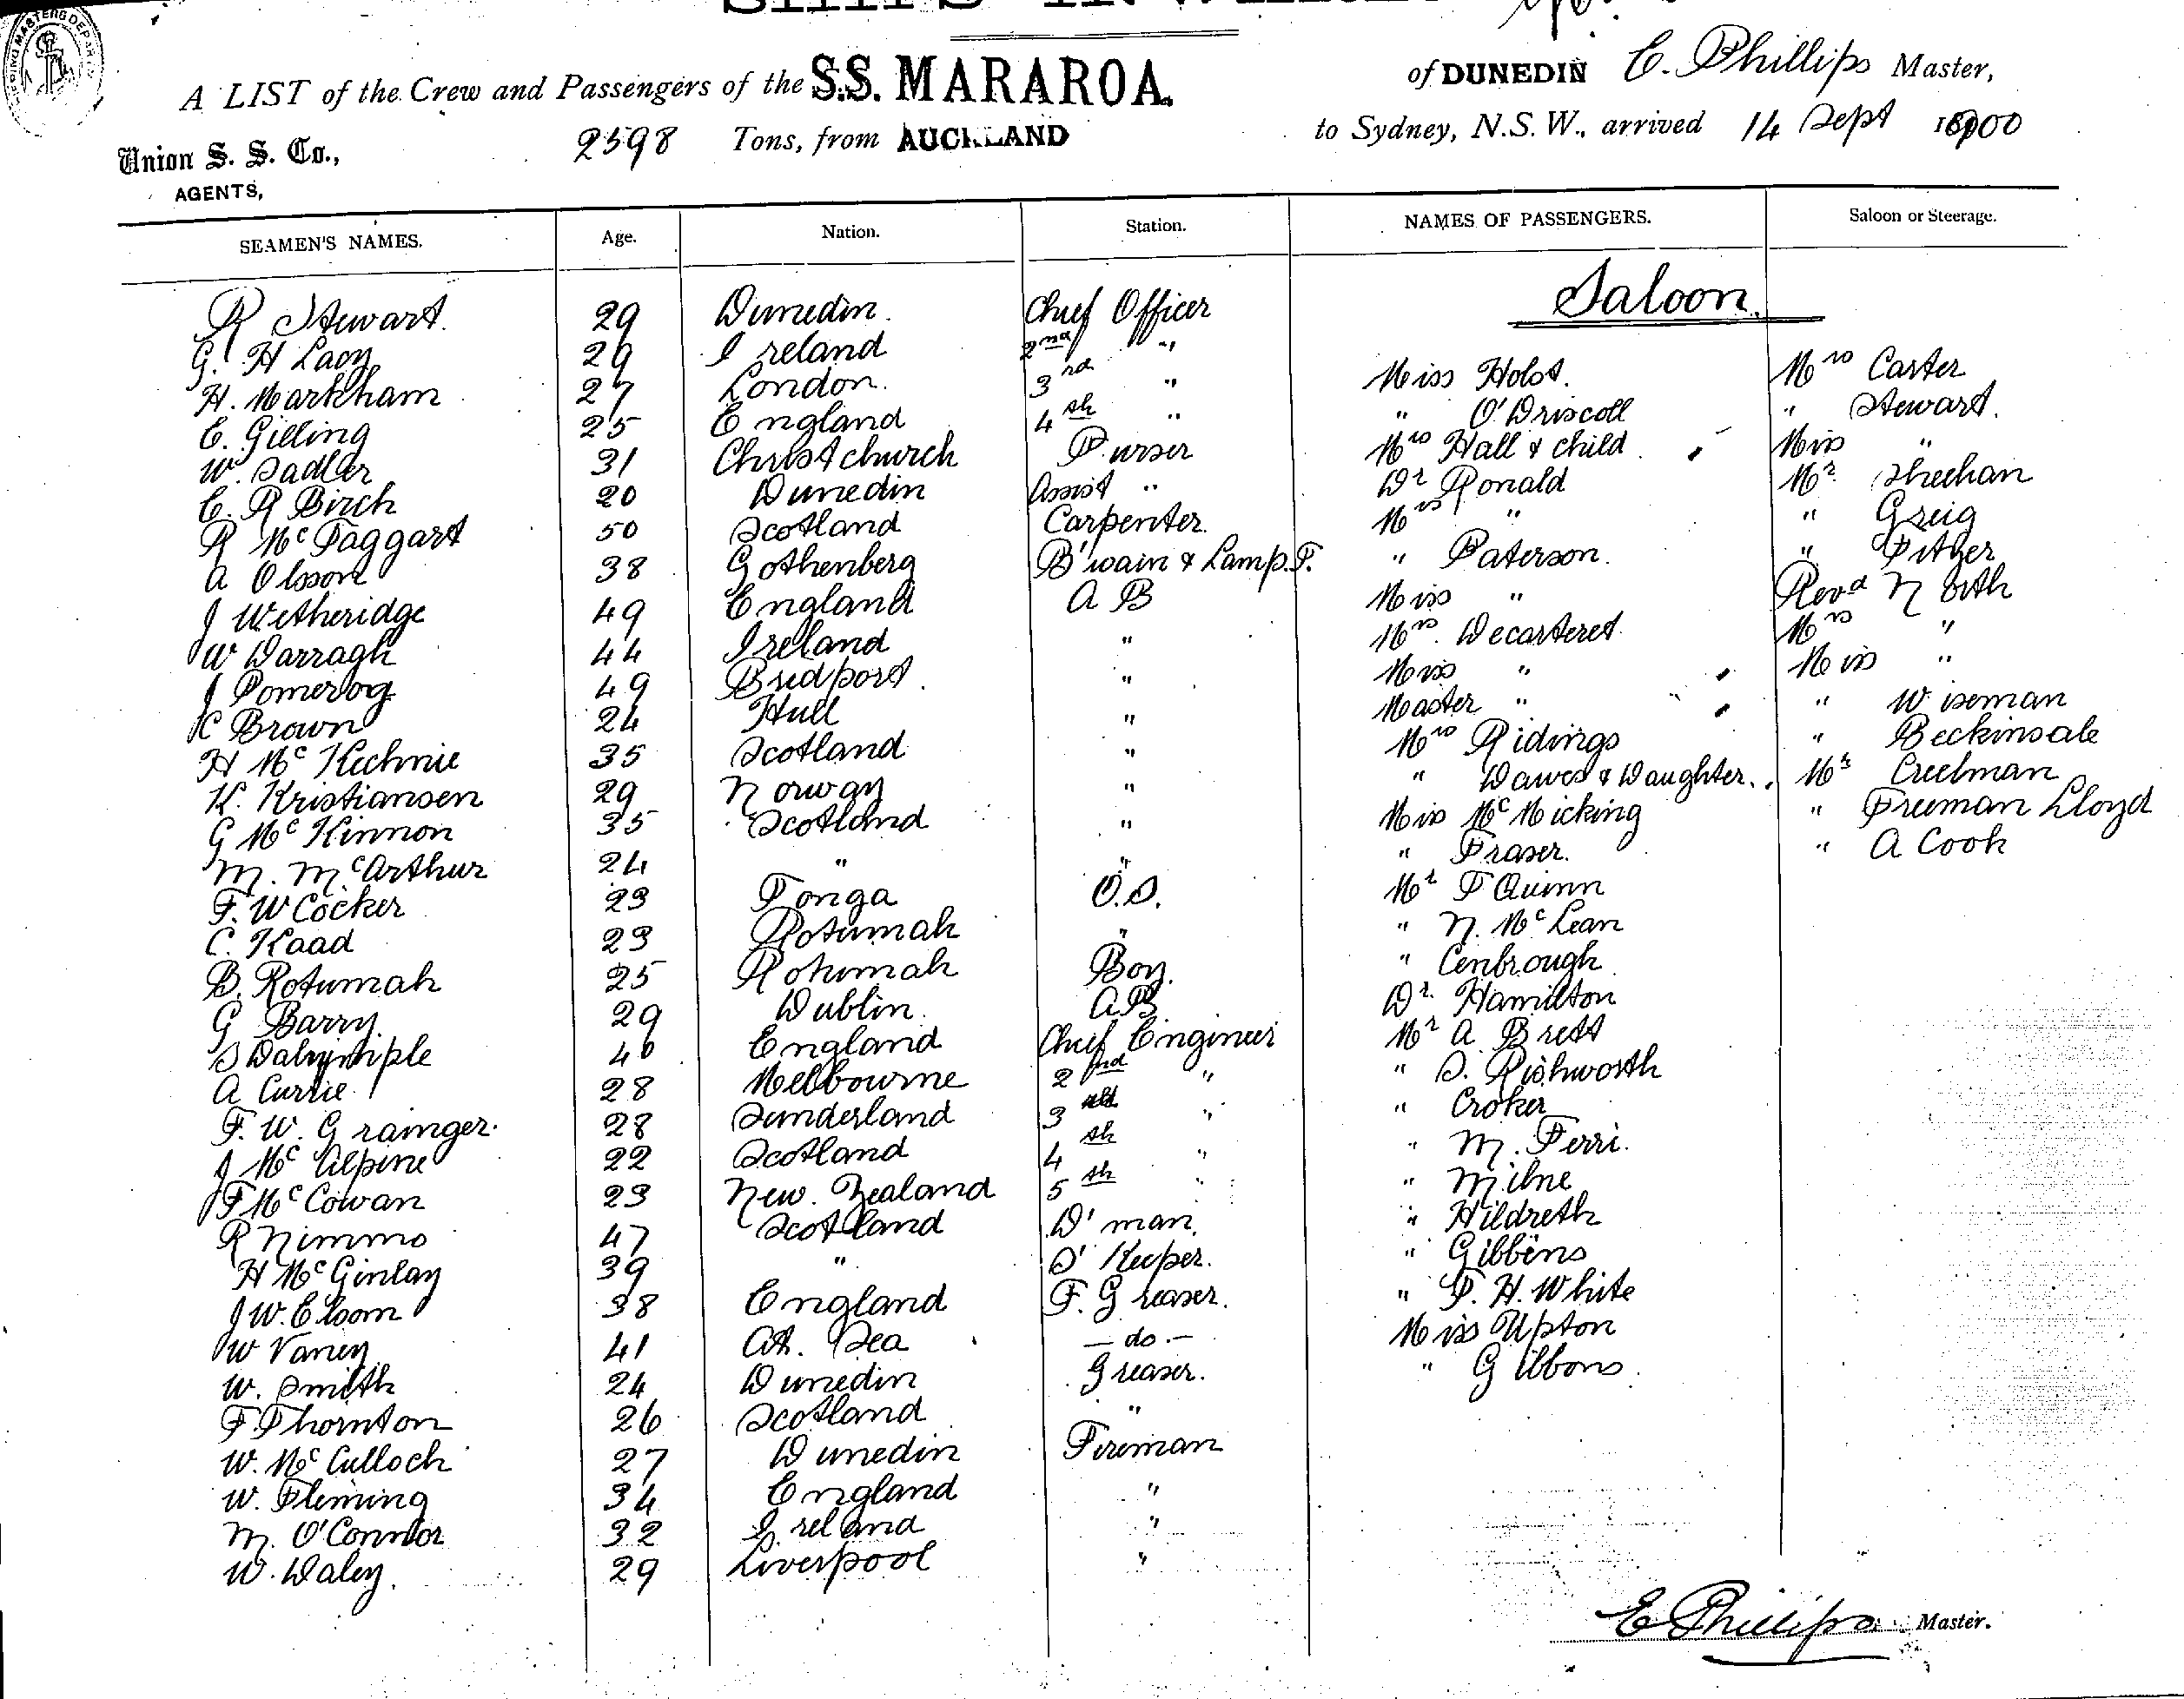 A LIST of the Crew and Passengers of the S.S. MARAROA. of DUNEDIN E. Phillips Master,
Union S. S. Co., 2598 Tons, from AUCKLAND to Sydney, N.S.W., arrived 14 Sept 1900
AGENTS,
SEAMEN'S NAMES. Age. Nation. Station. NAMES OF PASSENGERS. Saloon or Steerage.
Saloon.
R Stewart. 29 Dunedin. Chief Officer
G. H Lacy 29 Ireland 2nd "
H. Markham 27 London. 3rd " Miss Holst. Mrs Carter
E. Gilling 25 England 4th " " O'Driscoll " Stewart.
W. Sadler 31 Christchurch Purser Mrs Hall & child Miss "
C. R Birch 20 Dunedin Assist " Dr Ronald Mr. Sheehan
R McTaggart 50 Scotland Carpenter. Mrs " " Greig
A Olsson 38 Gothenberg B'swain & Lamp.T. " Paterson. " Pitzer
J Wetheridge 49 England A B Miss " Revd North
W Darragh 44 Ireland " Mrs. Decarteret Mrs "
J Pomeroy 49 Bridport. " Miss " Miss "
K Brown 24 Hull " Master " " Wiseman
H McKechnie 35 Scotland " Mrs Ridings " Beckinsale
K. Kristiansen 29 Norway " " Dawes & Daughter. Mr Creelman
G McKinnon 35 Scotland " Miss McMicking " Freeman Lloyd
M. McArthur 24 " " " Fraser. " A Cook
F. W Cocker 23 Tonga O.S. Mr T Quinn
C. Kaad 23 Rotumah " " N. McLean
B. Rotumah 25 Rotumah Boy. " Cenbrough
G Barry. 29 Dublin. AB. Dr. Hamilton
S Dalrymple 40 England Chief Engineer Mr A Brett
A Currie 28 Melbourne 2nd " " S. Rishworth
F. W. Grainger. 28 Sunderland 3rd " " Croker
J McAlpine 22 Scotland 4th " " M. Ferri.
J F McCowan 23 New. Zealand 5th " " Milne
R Nimmo 47 Scotland D'man. " Hildreth
H McGinlay 39 " S'Keeper. " Gibbens
J W. Eloom 38 England F. Greaser. " T. H. White
W Varney 41 At. Sea - do.- Miss Upton
W. Smith 24 Dunedin Greaser. " Gibbons.
F. Thornton 26 Scotland "
W. McCulloch 27 Dunedin Fireman
W. Fleming 34 England "
M. O'Connor 32 Ireland "
W. Daley. 29 Liverpool "
E Phillips Master.